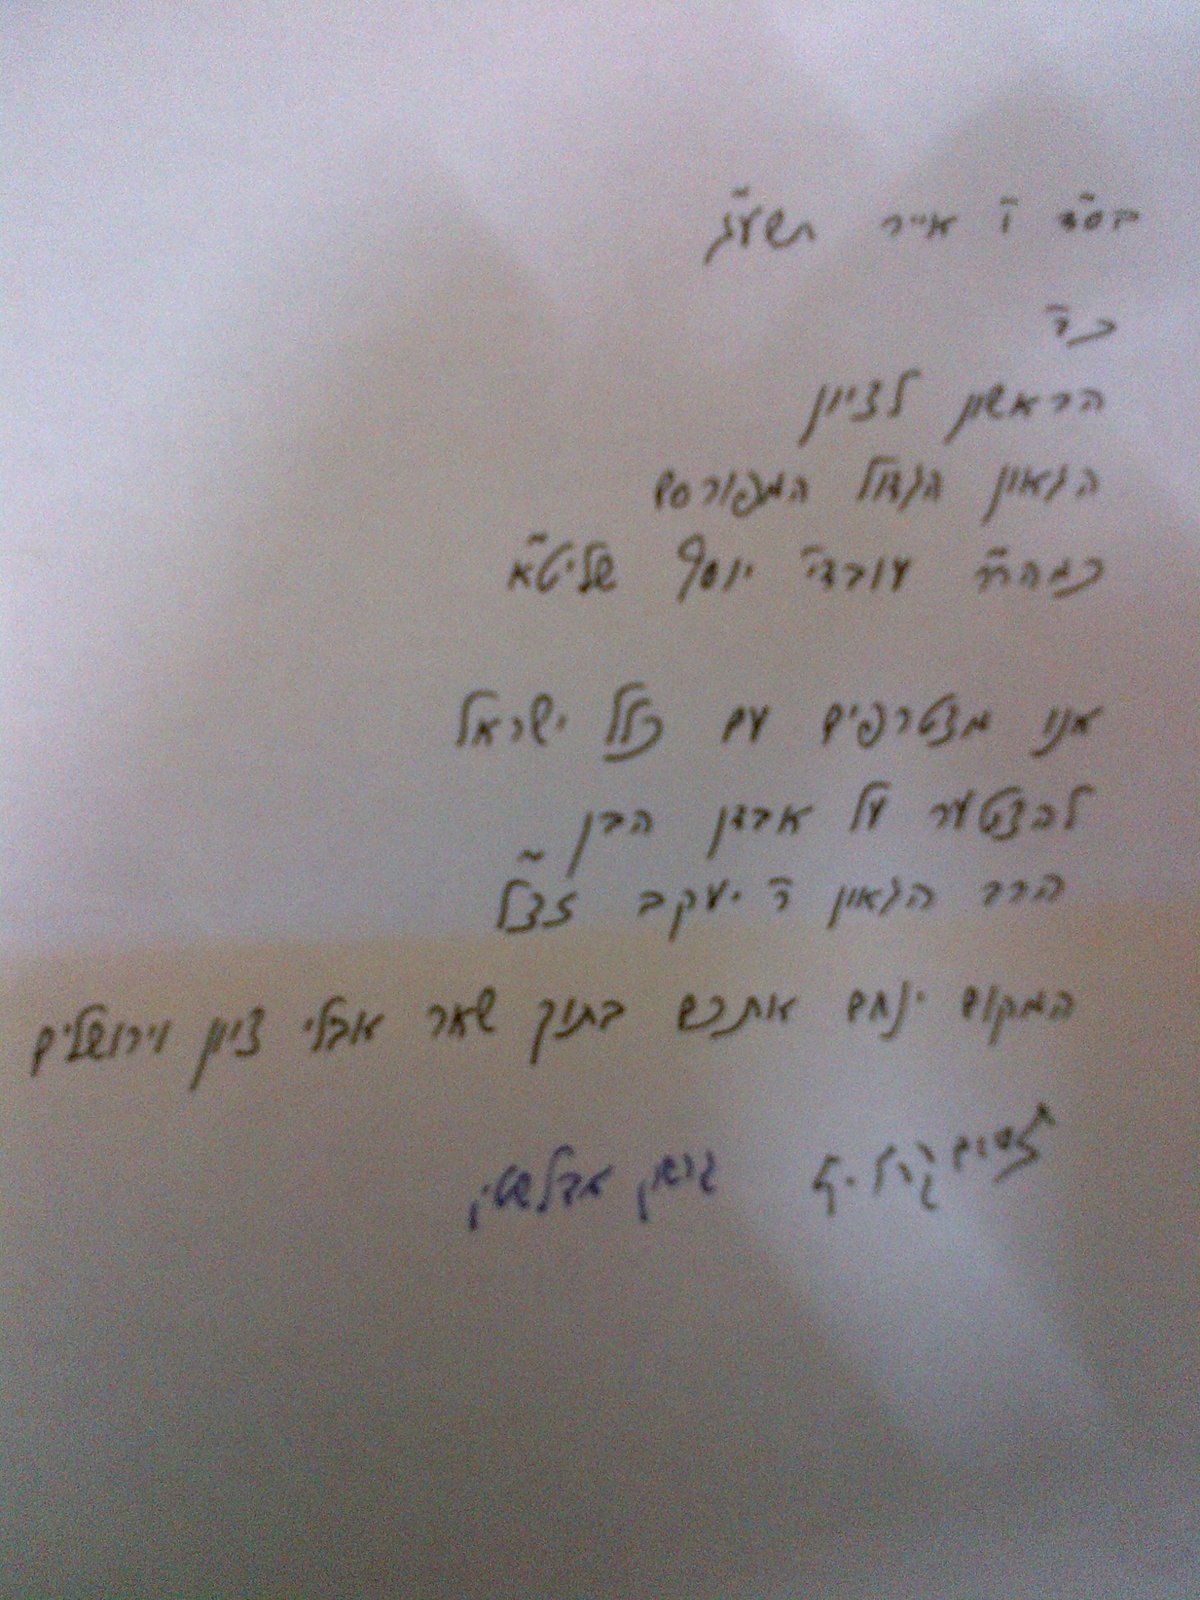 בס"ד ו' אייר תשע"ג
כ"ד
הראשון לציון
הגאון הגדול המפורסם
כמהר"ר עובדי' יוסף שליט"א
אנו מצטרפים עם כלל ישראל
להצטער על אבדן הבן
הרב הגאון ר' יעקב זצ"ל
המקום ינחם אתכם בתוך שאר אבלי ציון וירושלים
נסים קרליץ גרשון אדלשטין